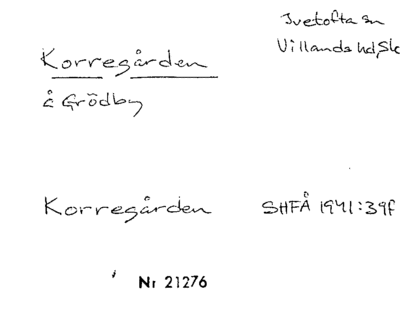 Ivetofta sn
Villands hd, Sk
Korregården
å Grödby
Korregården SHFÅ 1941:39f
Nr 21276